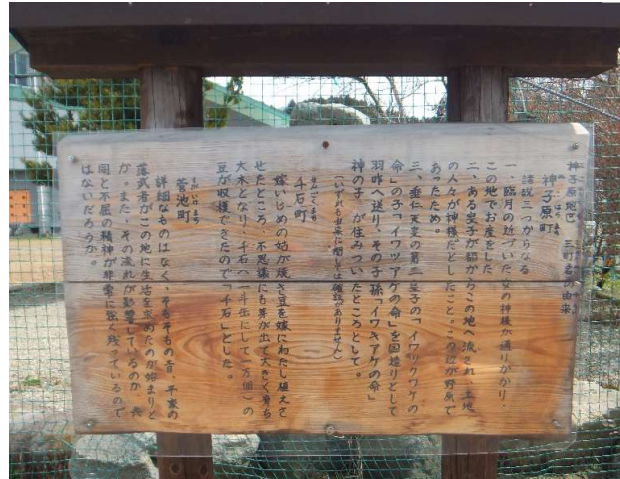 神子原地区 三町名の由来
神子原町
諸説三つからなる
一、臨月の近づいた女の神様が通りがかり、
この地でお産をした
二、ある皇子が都からこの地へ流され、土地
の人々が神様だとしたこと。この辺が野原で
あったため。
三、垂仁天皇の第三皇子の「イワツクワケの
命」の子「イワツアケの命」を国造りとして
羽咋へ送り、その子孫「イワキアケの命」
神の子」が住みついたところとして。
(いづれも由来に関しては確証がありません)
せんごくまち
千石町
嫁いじめの姑が焼き豆を嫁にわたし植えさ
せたところ、不思議にも芽が出て大きく育ち
大木となり、千石(一斗缶にして一万個)の
豆が収穫できたので「千石」とした。
菅池町
詳細なものはなく、そもそもの昔、平家の
落武者がこの地に生活を求めたのが始まりと
か。また、その流れが影響しているのか、共
同と不屈の精神が非常に強く残っているので
はないだろうか。